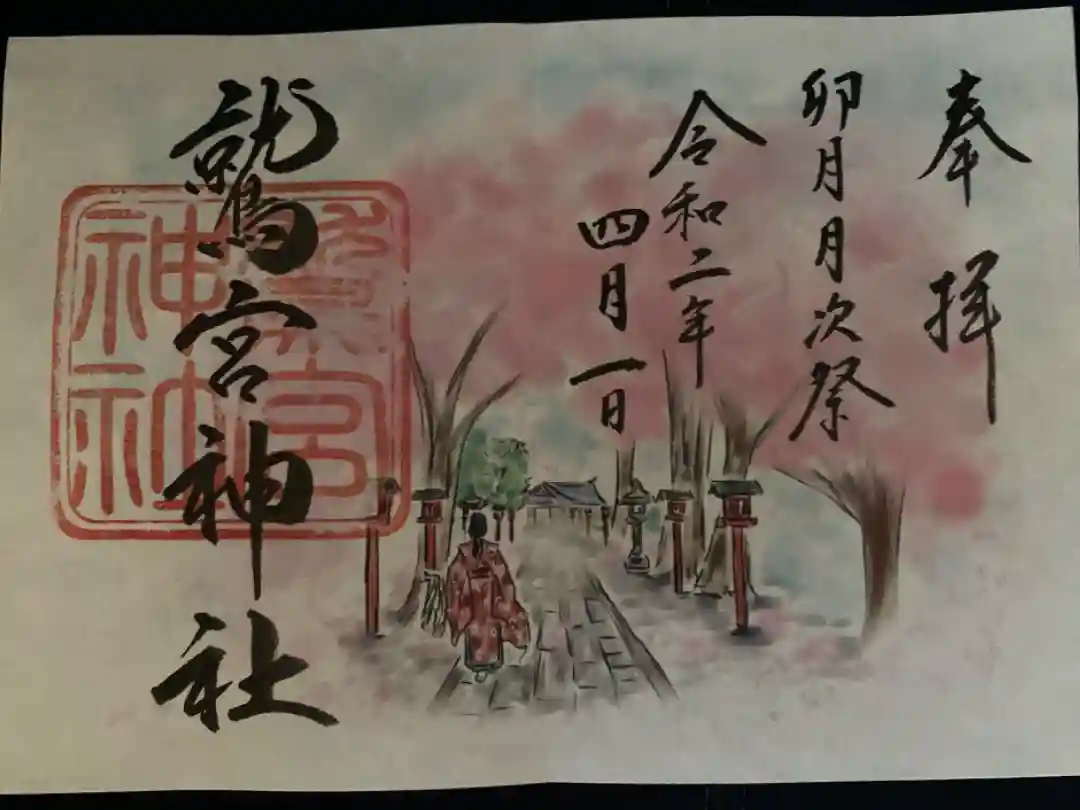 奉拝
卯月月次祭
令和二年
四月一日
鷲宮神社
鷲宮
神社